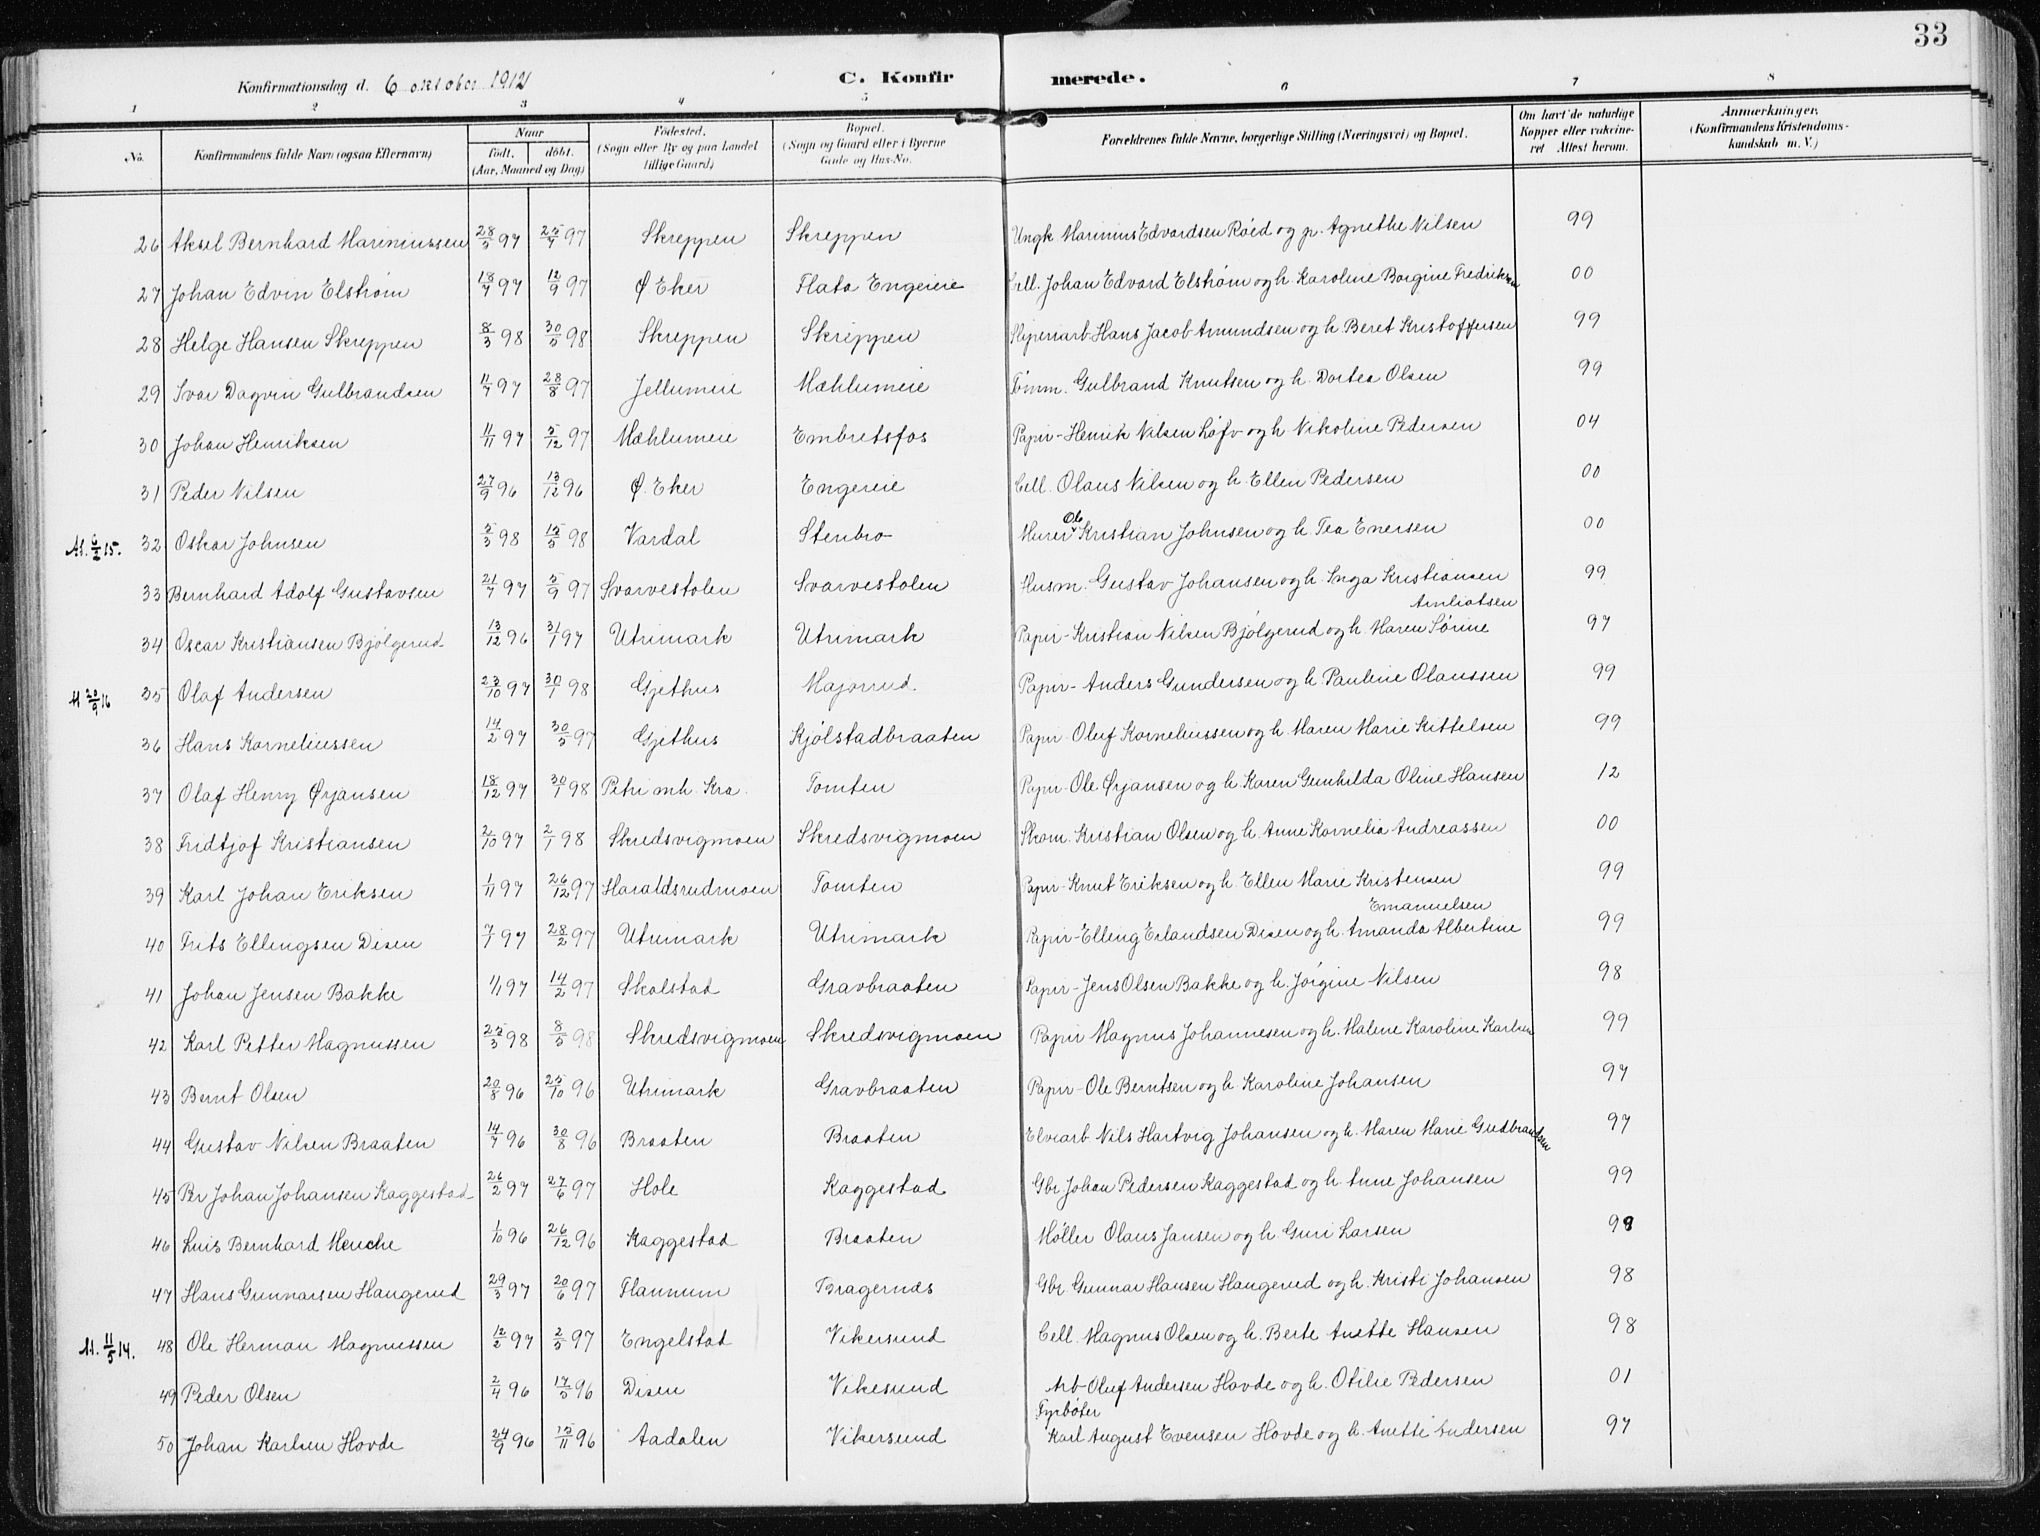 33
Konfirmationsdag d. 6 oktober 1912
C. Konfirmerede.
1 2 3 4 5 6 7 8
No. Konfirmandens fulde Navn (ogsaa Efternavn) Naar født. døbt. (Aar, Maaned og Dag) Fødested. (Sogn eller By og paa Landet tillige Gaard) Bopæl. (Sogn og Gaard eller i Byerne Gade og Hus-No. Forældrenes fulde Navne, borgerlige Stilling (Næringsvei) og Bopæl. Om havt de naturlige Kopper eller vakcineret Attest herom. Anmærkninger. (Konfirmandens Kristendomskundskab m. V.)
26 Aksel Bernhard Mariniussen 28/5 97 25/7 97 Skreppen Skreppen Ungk. Marinius Edvardsen Røed og p. Agnethe Nilsen 99
27 Johan Edvin Elstrøm 18/7 97 12/9 97 Ø Eker Flata Engereie Cell. Johan Edvard Elstrøm og h. Karoline Borgine Fredriksen 00
28 Helge Hansen Skreppen 8/3 98 30/5 98 Skreppen Skreppen Sliperiarb Hans Jacob Amundsen og h. Beret Kristoffersen 99
29 Ivar Dagvin Gulbrandsen 11/7 97 28/8 97 Jellumeie Mæhlumeie Tømm. Gulbrand Knutsen og h. Dortea Olsen 99
30 Johan Henriksen 11/11 97 5/12 97 Mæhlumeie Embretsfos Papir- Henrik Nilsen Løfv og h Nikoline Pedersen 04
31 Peder Nilsen 27/9 96 13/12 96 Ø. Eker Engereie Cell. Olaus Nilsen og h. Ellen Pedersen 00
At. 6/2 15. 32 Oskar Johnsen 5/3 98 15/5 98 Vardal Stenbro Murer Ol. Kristian Johnsen og h. Tea Enersen 00
33 Bernhard Adolf Gustavsen 21/7 97 5/9 97 Svarvestolen Svarvestolen Husm. Gustav Johansen og h. Inga Kristiansen 99
Amliotsen
34 Oscar Kristiansen Bjølgerud 13/12 96 31/1 97 Utrimark Utrimark Papir- Kristian Nilsen Bjølgerud og h. Maren Sørine 97
At 20/9 16 35 Olaf Andersen 23/10 97 30/1 98 Gjethus Majorrud. Papir- Anders Gundersen og h. Pauline Olaussen 99
36 Hans Korneliussen 14/2 97 30/5 97 Gjethus Kjølstadbraaten Papir- Oluf Korneliussen og h. Maren Marie Kittelsen 99
37 Olaf Henry Ørjansen 18/12 97 30/1 98 Petri mh. Kra. Tomten Papir- Ole Ørjansen og h. Karen Gunhilda Oline Hansen 12
38 Fridtjof Kristiansen 2/10 97 2/1 98 Skredsvigmoen Skredsvigmoen Skom. Kristian Olsen og h. Anne Kornelia Andreassen 00
39 Karl Johan Eriksen 1/11 97 26/12 97 Haraldsrudmoen Tomten Papir- Knut Eriksen og h. Ellen Marie Kristensen 99
Emanuelsen
40 Frits Ellingsen Disen 7/1 97 28/2 97 Utrimark Utrimark Papir- Elling Erlandsen Disen og h. Amanda Albertine 99
41 Johan Jensen Bakke 1/1 97 14/2 97 Skalstad Gravbraaten Papir- Jens Olsen Bakke og h. Jørgine Nilsen 98
42 Karl Petter Magnussen 25/3 98 8/5 98 Skredsvigmoen Skredsvigmoen Papir Magnus Johannesen og h. Malene Karoline Karlsen 99
43 Bernt Olsen 20/8 96 25/10 96 Utrimark Gravbraaten Papir- Ole Berntsen og h. Karoline Johansen 97
44 Gustav Nilsen Braaten 14/7 96 30/8 96 Braaten Braaten Elvearb Nils Hartvig Johansen og h. Maren Marie Gudbrandsen 97
45 Per Johan Johansen Kaggestad 26/2 97 27/6 97 Hole Kaggestad Gbr Johan Pedersen Kaggestad og h. Anne Johansen 99
46 Luis Bernhard Menche 1/10 96 26/12 96 Kaggestad Braaten Møller Olaus Jansen og h. Guri Larsen 98
47 Hans Gunnarsen Haugerud 29/3 97 20/6 97 Flannum Bragernæs Gbr. Gunnar Hansen Haugerud og h. Kristi Johansen 98
At. 11/5 14. 48 Ole Herman Magnussen 12/2 97 2/5 97 Engelstad Vikersund Cell. Magnus Olsen og h. Berte Anette Hansen 98
49 Peder Olsen 2/4 96 17/5 96 Disen Vikesund Arb- Oluf Andersen Hovde og h. Otilie Pedersen 01
Fyrbøter
50 Johan Karlsen Hovde 24/9 96 15/11 96 Aadalen Vikersund Karl August Evensen Hovde og h. Anette Andersen 97